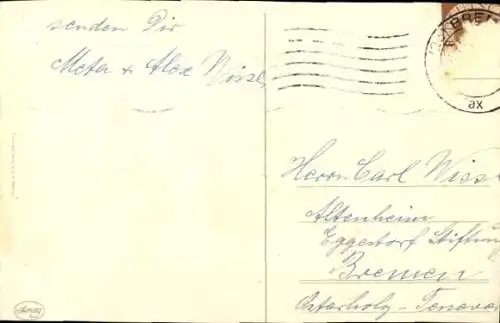 senden Dir
Meta & Alex
BRE
ax
Herrn Carl
Altenheim
Eggestorf Stiftung
Bremen
Osterholz - Tenever